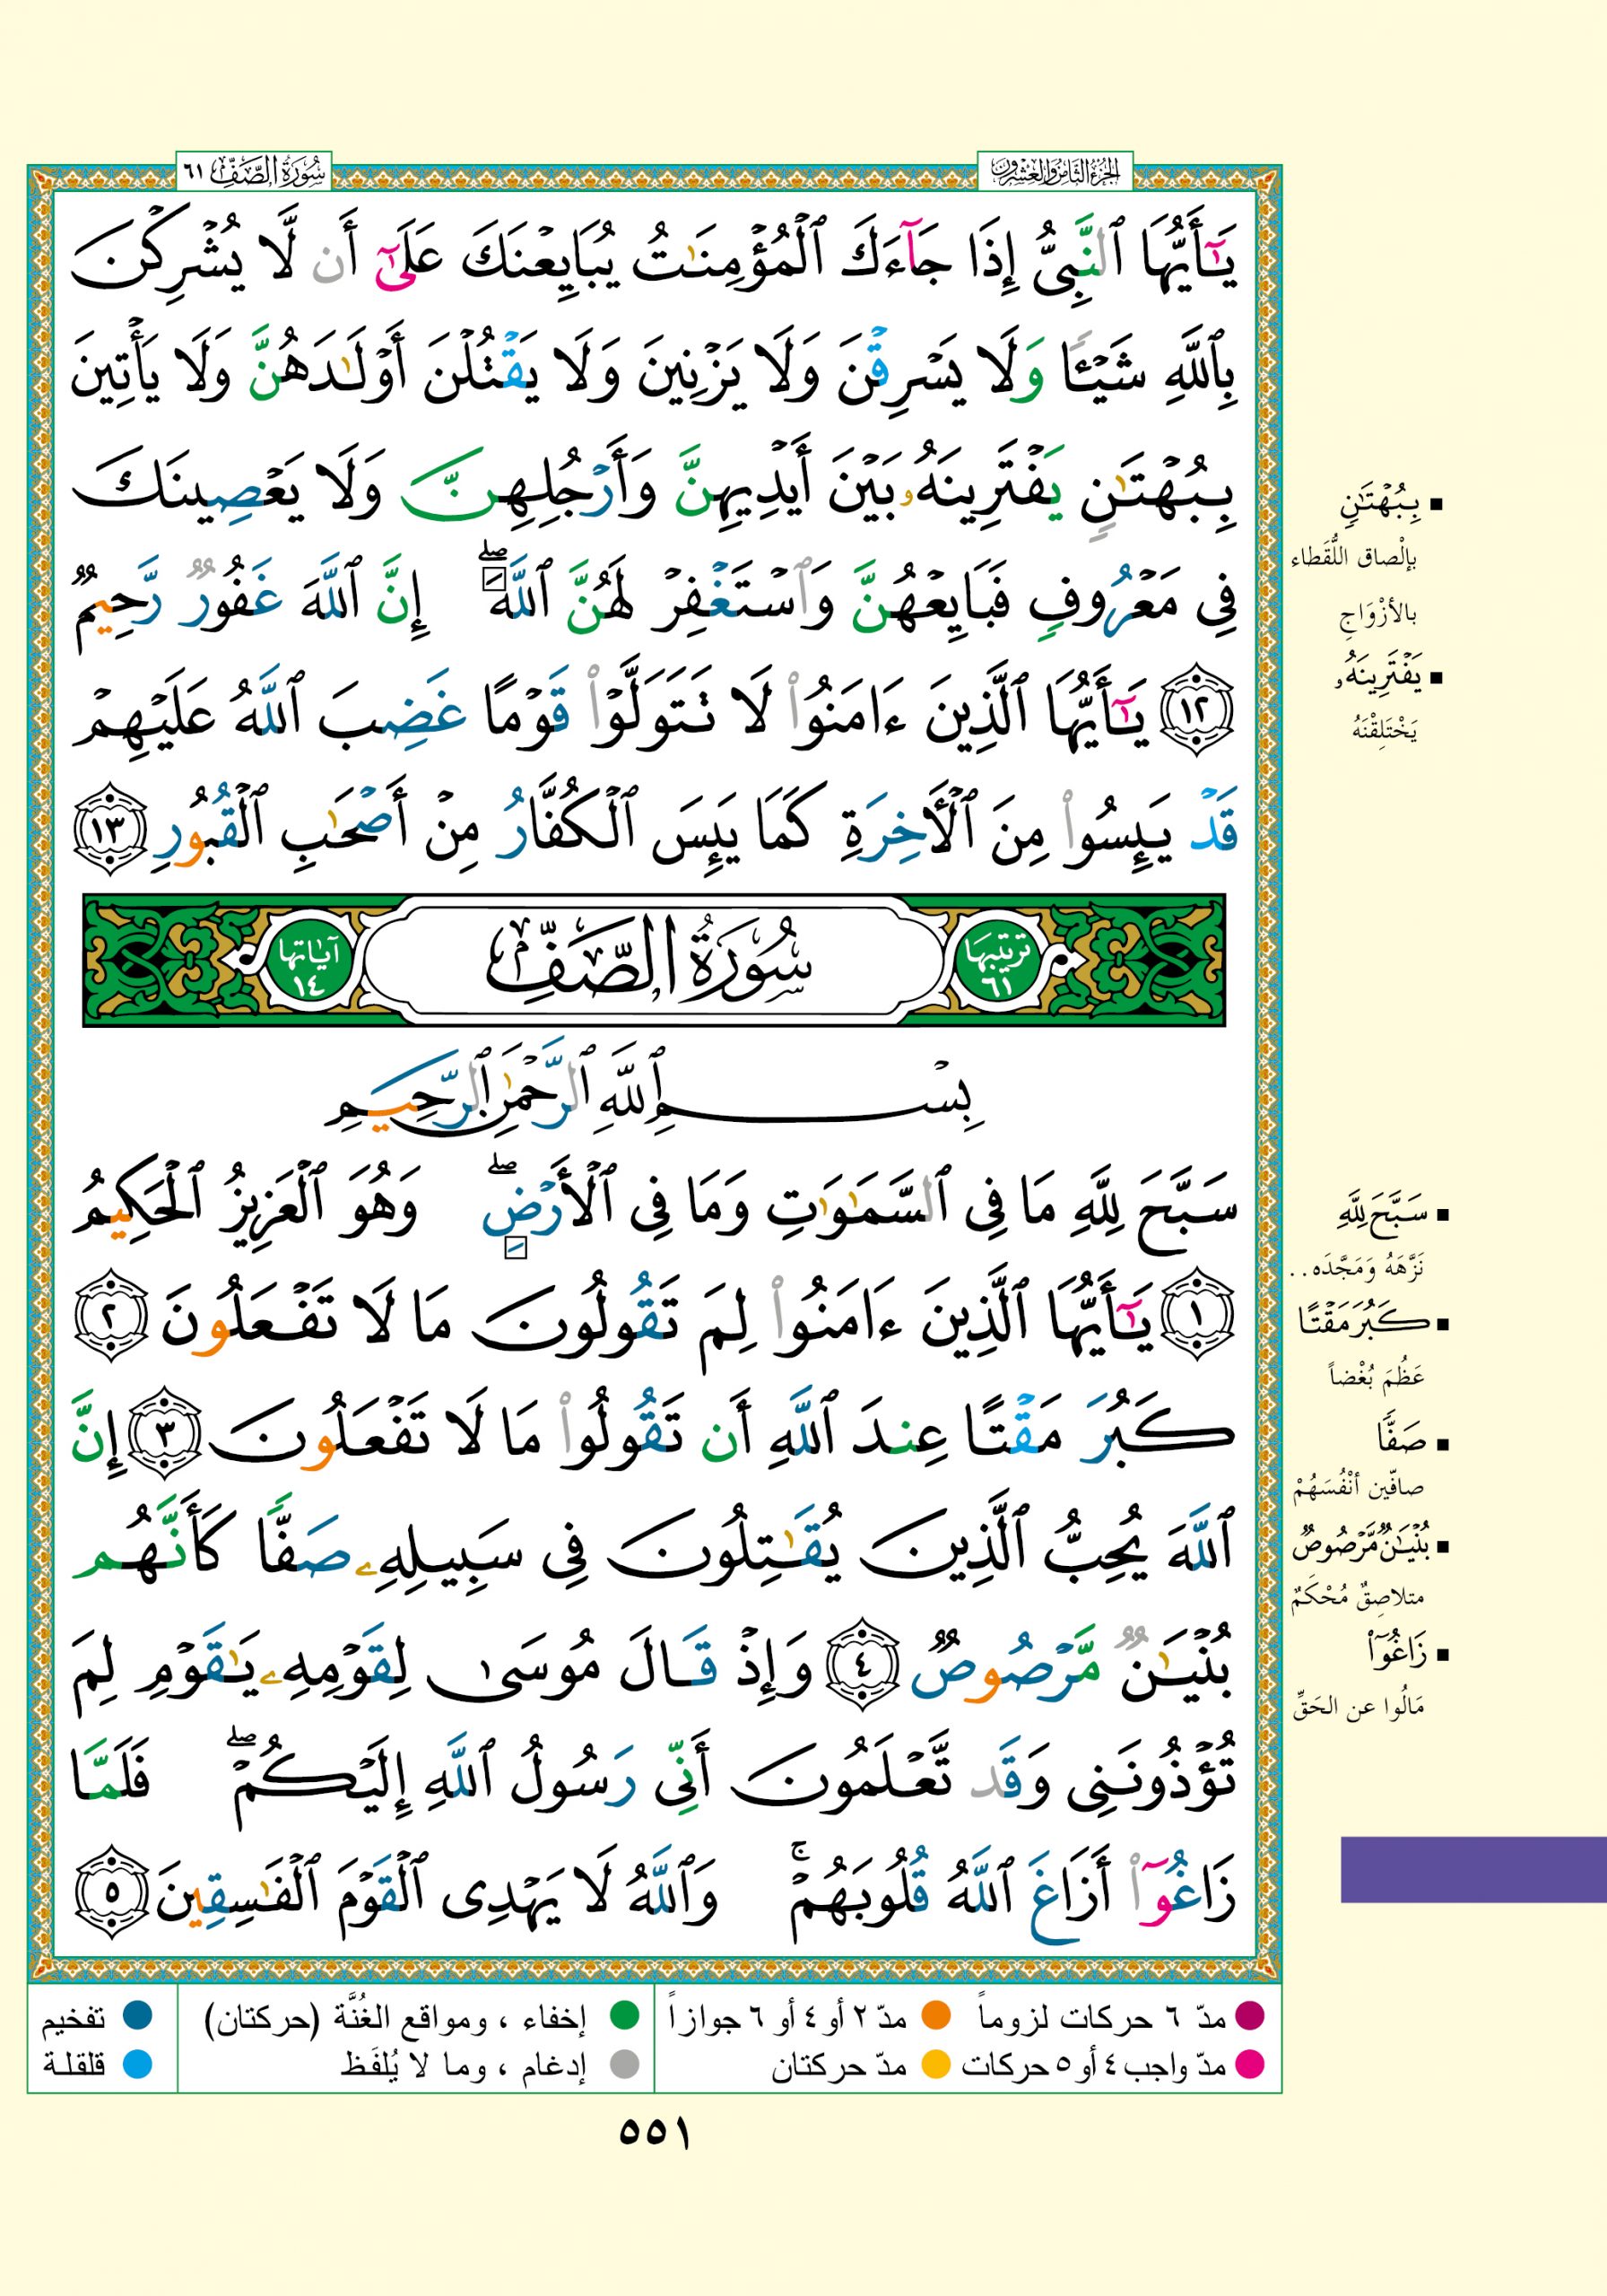 الجزء الثامن والعشرون
سُورَةُ الصَّفِّ ٦١
يَـٰٓأَيُّهَا ٱلنَّبِىُّ إِذَا جَآءَكَ ٱلْمُؤْمِنَـٰتُ يُبَايِعْنَكَ عَلَىٰٓ أَن لَّا يُشْرِكْنَ
بِٱللَّهِ شَيْـًٔا وَلَا يَسْرِقْنَ وَلَا يَزْنِينَ وَلَا يَقْتُلْنَ أَوْلَـٰدَهُنَّ وَلَا يَأْتِينَ
بِبُهْتَـٰنٍ يَفْتَرِينَهُۥ بَيْنَ أَيْدِيهِنَّ وَأَرْجُلِهِنَّ وَلَا يَعْصِينَكَ
فِى مَعْرُوفٍ فَبَايِعْهُنَّ وَٱسْتَغْفِرْ لَهُنَّ ٱللَّهَ ۖ إِنَّ ٱللَّهَ غَفُورٌ رَّحِيمٌ
١٢ يَـٰٓأَيُّهَا ٱلَّذِينَ ءَامَنُوا۟ لَا تَتَوَلَّوْا۟ قَوْمًا غَضِبَ ٱللَّهُ عَلَيْهِمْ
قَدْ يَئِسُوا۟ مِنَ ٱلْـَٔاخِرَةِ كَمَا يَئِسَ ٱلْكُفَّارُ مِنْ أَصْحَـٰبِ ٱلْقُبُورِ ١٣
ترتيبها ٦١ سُورَةُ الصَّفِّ آياتها ١٤
بِسْمِ ٱللَّهِ ٱلرَّحْمَـٰنِ ٱلرَّحِيمِ
سَبَّحَ لِلَّهِ مَا فِى ٱلسَّمَـٰوَٰتِ وَمَا فِى ٱلْأَرْضِ ۖ وَهُوَ ٱلْعَزِيزُ ٱلْحَكِيمُ
١ يَـٰٓأَيُّهَا ٱلَّذِينَ ءَامَنُوا۟ لِمَ تَقُولُونَ مَا لَا تَفْعَلُونَ ٢
كَبُرَ مَقْتًا عِندَ ٱللَّهِ أَن تَقُولُوا۟ مَا لَا تَفْعَلُونَ ٣ إِنَّ
ٱللَّهَ يُحِبُّ ٱلَّذِينَ يُقَـٰتِلُونَ فِى سَبِيلِهِۦ صَفًّا كَأَنَّهُم
بُنْيَـٰنٌ مَّرْصُوصٌ ٤ وَإِذْ قَالَ مُوسَىٰ لِقَوْمِهِۦ يَـٰقَوْمِ لِمَ
تُؤْذُونَنِى وَقَد تَّعْلَمُونَ أَنِّى رَسُولُ ٱللَّهِ إِلَيْكُمْ ۖ فَلَمَّا
زَاغُوٓا۟ أَزَاغَ ٱللَّهُ قُلُوبَهُمْ ۚ وَٱللَّهُ لَا يَهْدِى ٱلْقَوْمَ ٱلْفَـٰسِقِينَ ٥
▪ بِبُهْتَـٰنٍ
بإلْصاق اللُّقَطاء
بالأزْوَاجِ
▪ يَفْتَرِينَهُۥ
يَخْتَلِقْنَهُ
▪ سَبَّحَ لِلَّهِ
نَزَّهَهُ وَمَجَّدَه..
▪ كَبُرَ مَقْتًا
عَظُمَ بُغْضاً
▪ صَفًّا
صافّين أنْفُسَهُمْ
▪ بُنْيَـٰنٌ مَّرْصُوصٌ
متلاصِقٌ مُحْكَمٌ
▪ زَاغُوٓا۟
مَالُوا عن الحَقِّ
مدّ ٦ حركات لزوماً ● مدّ ٢ أو ٤ أو ٦ جوازاً ● إخفاء ، ومواقع الغُنَّة (حركتان) ● تفخيم
مدّ واجب ٤ أو ٥ حركات ● مدّ حركتان ● إدغام ، وما لا يُلفَظ ● قلقلة
٥٥١